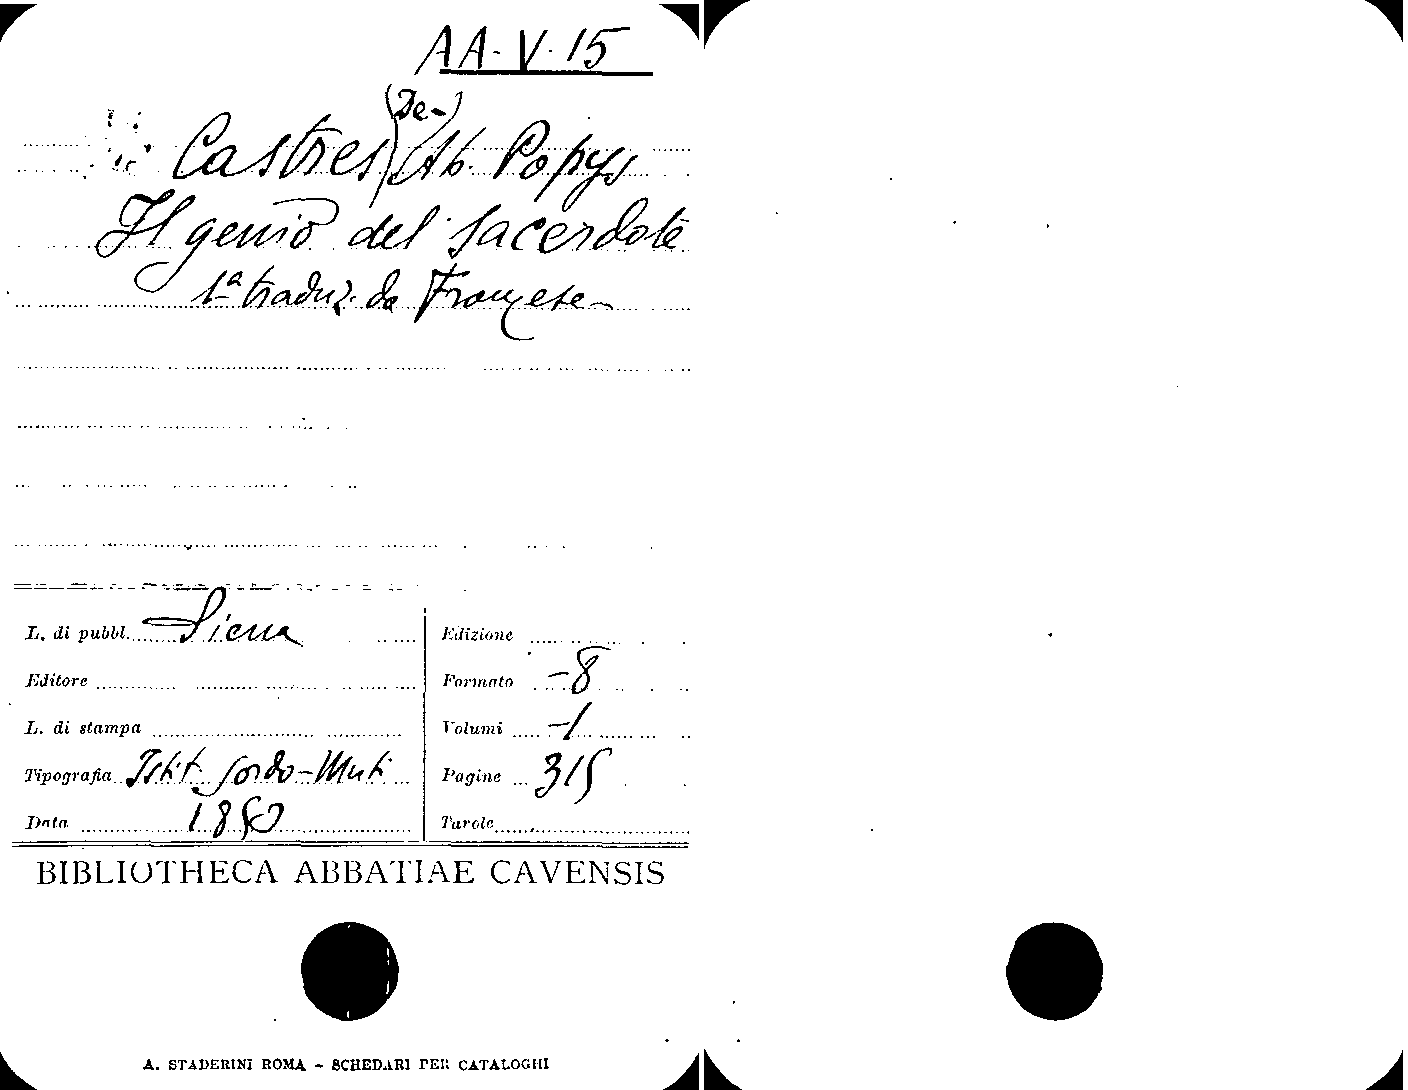 AA-V-15
Castres (De-) (Ab. Popys
Il genio del sacerdote
1ª traduz. da Francese
L. di pubbl. Siena
Editore
L. di stampa
Tipografia Istit. Sordo-Muti
Data 1850
Edizione
Formato -8
Volumi -1
Pagine 315
Tavole
BIBLIOTHECA ABBATIAE CAVENSIS
A. STADERINI ROMA - SCHEDARI PER CATALOGHI